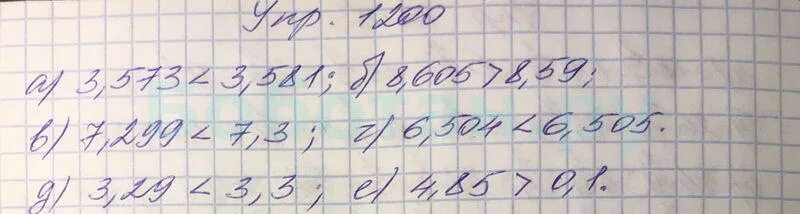 Упр. 1200
а) 3,573 < 3,581; б) 8,605 > 8,59;
в) 7,299 < 7,3; г) 6,504 < 6,505.
д) 3,29 < 3,3; е) 4,85 > 0,1.